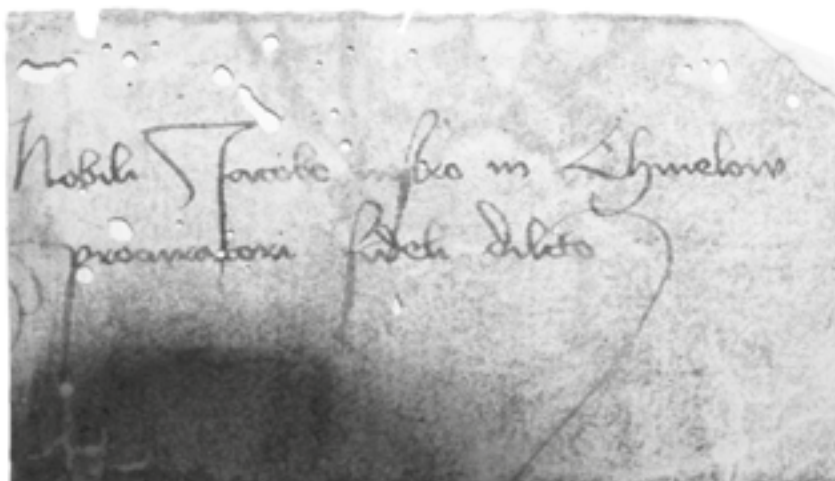 Nobili Jacobo in Chmelow
procuratori fideli dilcto